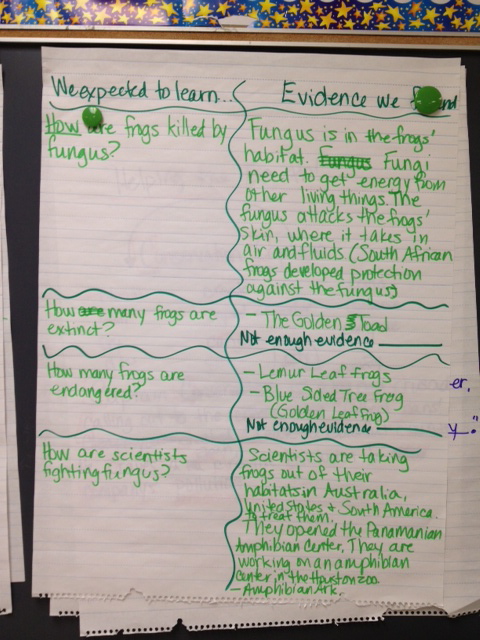 We expected to learn...
Evidence we found
How are frogs killed by
fungus?
Fungus is in the frogs'
habitat. Fungus Fungi
need to get energy from
other living things. The
fungus attacks the frogs'
skin, where it takes in
air and fluids (South African
frogs developed protection
against the fungus)
How are many frogs are
extinct?
- The Golden Toad
Not enough evidence
How many frogs are
endangered?
- Lemur Leaf frogs
- Blue Sided Tree Frog
(Golden Leaf Frog)
Not enough evidence
How are scientists
fighting fungus?
Scientists are taking
frogs out of their
habitats in Australia,
United States + South America
to treat them.
They opened the Panamanian
Amphibian Center. They are
working on an amphibian
center in the Houston zoo
- Amphibian Ark.
er.
y."